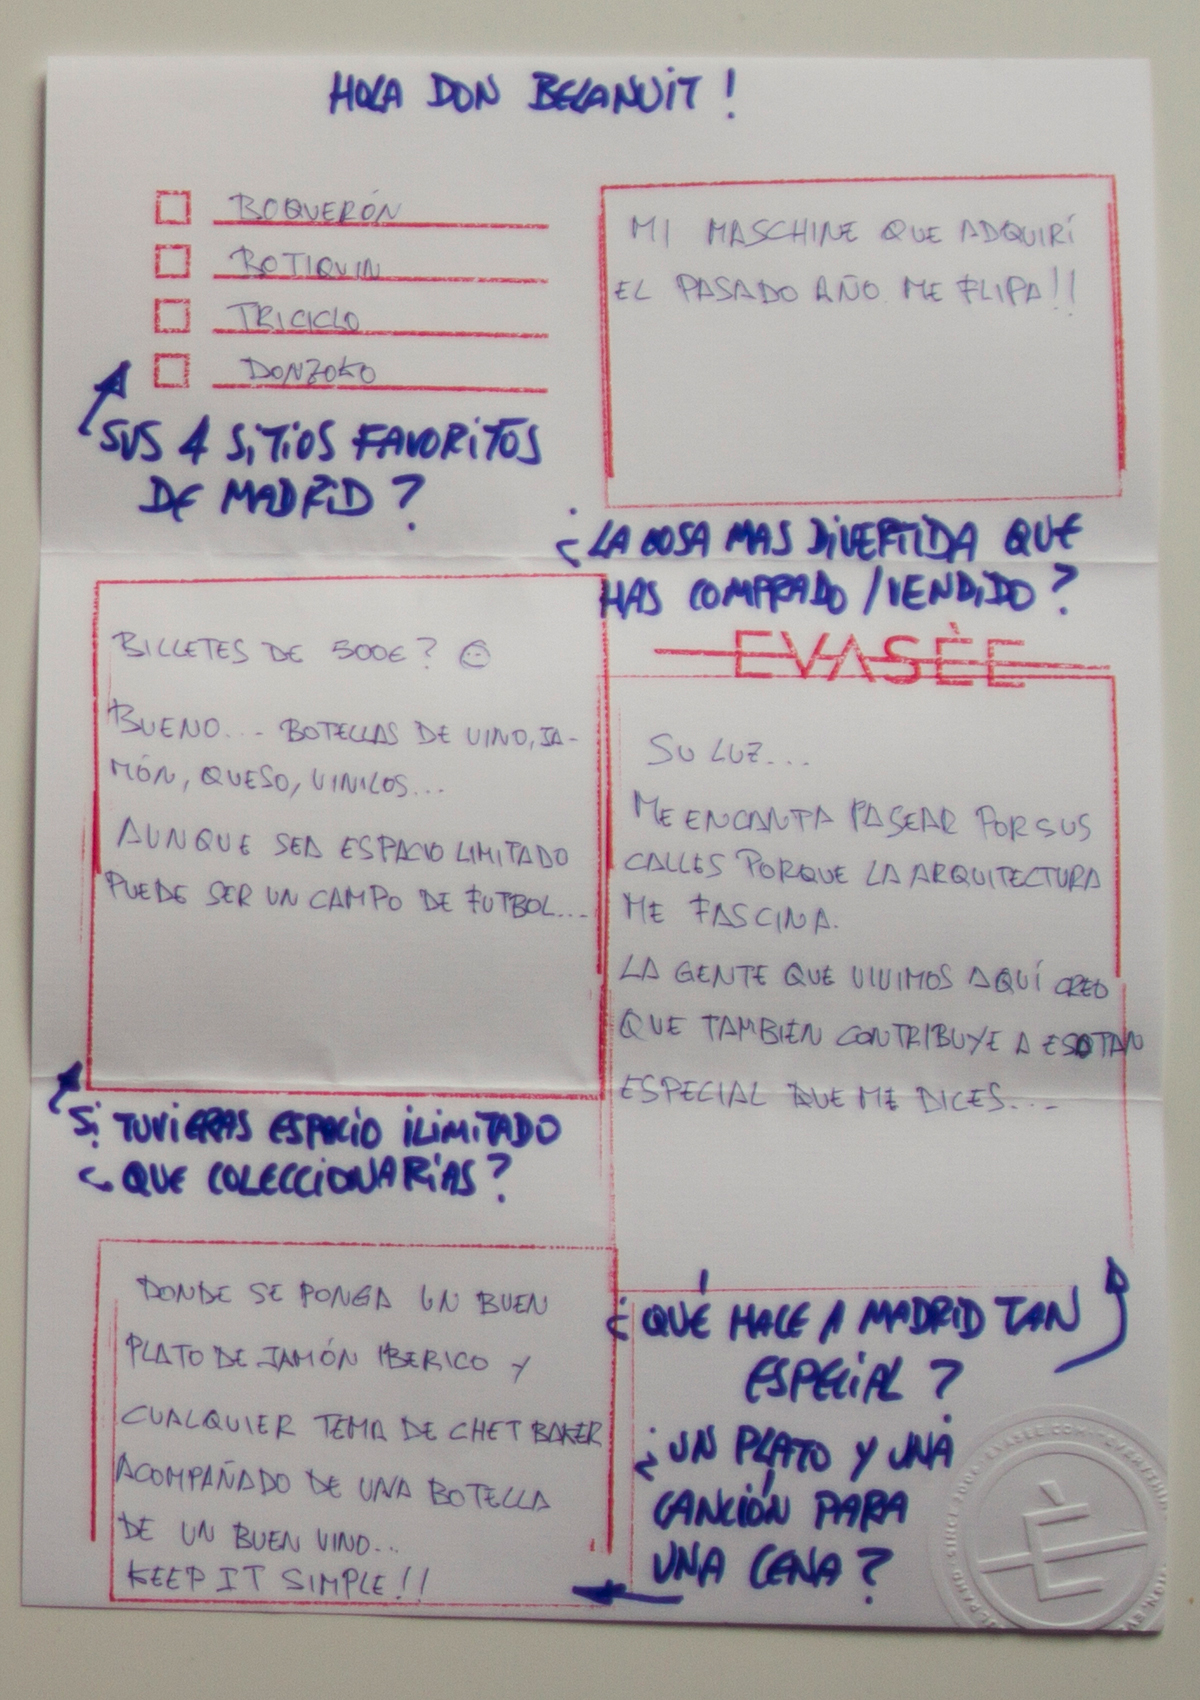 HOLA DON BELANUIT !
BOQUERÓN
BOTIQUIN
TRICICLO
DONZOKO
SUS 4 SITIOS FAVORITOS
DE MADRID ?
MI MASCHINE QUE ADQUIRÍ
EL PASADO AÑO ME FLIPA!!
¿LA COSA MAS DIVERTIDA QUE
HAS COMPRADO /VENDIDO ?
BILLETES DE 500€ ? ☺
BUENO... BOTELLAS DE VINO, JA-
MÓN, QUESO, VINILOS...
AUNQUE SEA ESPACIO LIMITADO
PUEDE SER UN CAMPO DE FUTBOL...
SI TUVIERAS ESPACIO ILIMITADO
¿QUE COLECCIONARIAS ?
EVASÈE
SU LUZ...
ME ENCANTA PASEAR POR SUS
CALLES PORQUE LA ARQUITECTURA
ME FASCINA.
LA GENTE QUE VIVIMOS AQUÍ CREO
QUE TAMBIEN CONTRIBUYE A ESO TAN
ESPECIAL QUE ME DICES...
¿QUÉ HACE A MADRID TAN
ESPECIAL ?
DONDE SE PONGA UN BUEN
PLATO DE JAMÓN IBERICO Y
CUALQUIER TEMA DE CHET BAKER
ACOMPAÑADO DE UNA BOTELLA
DE UN BUEN VINO...
KEEP IT SIMPLE !!
¿UN PLATO Y UNA
CANCIÓN PARA
UNA CENA ?
È